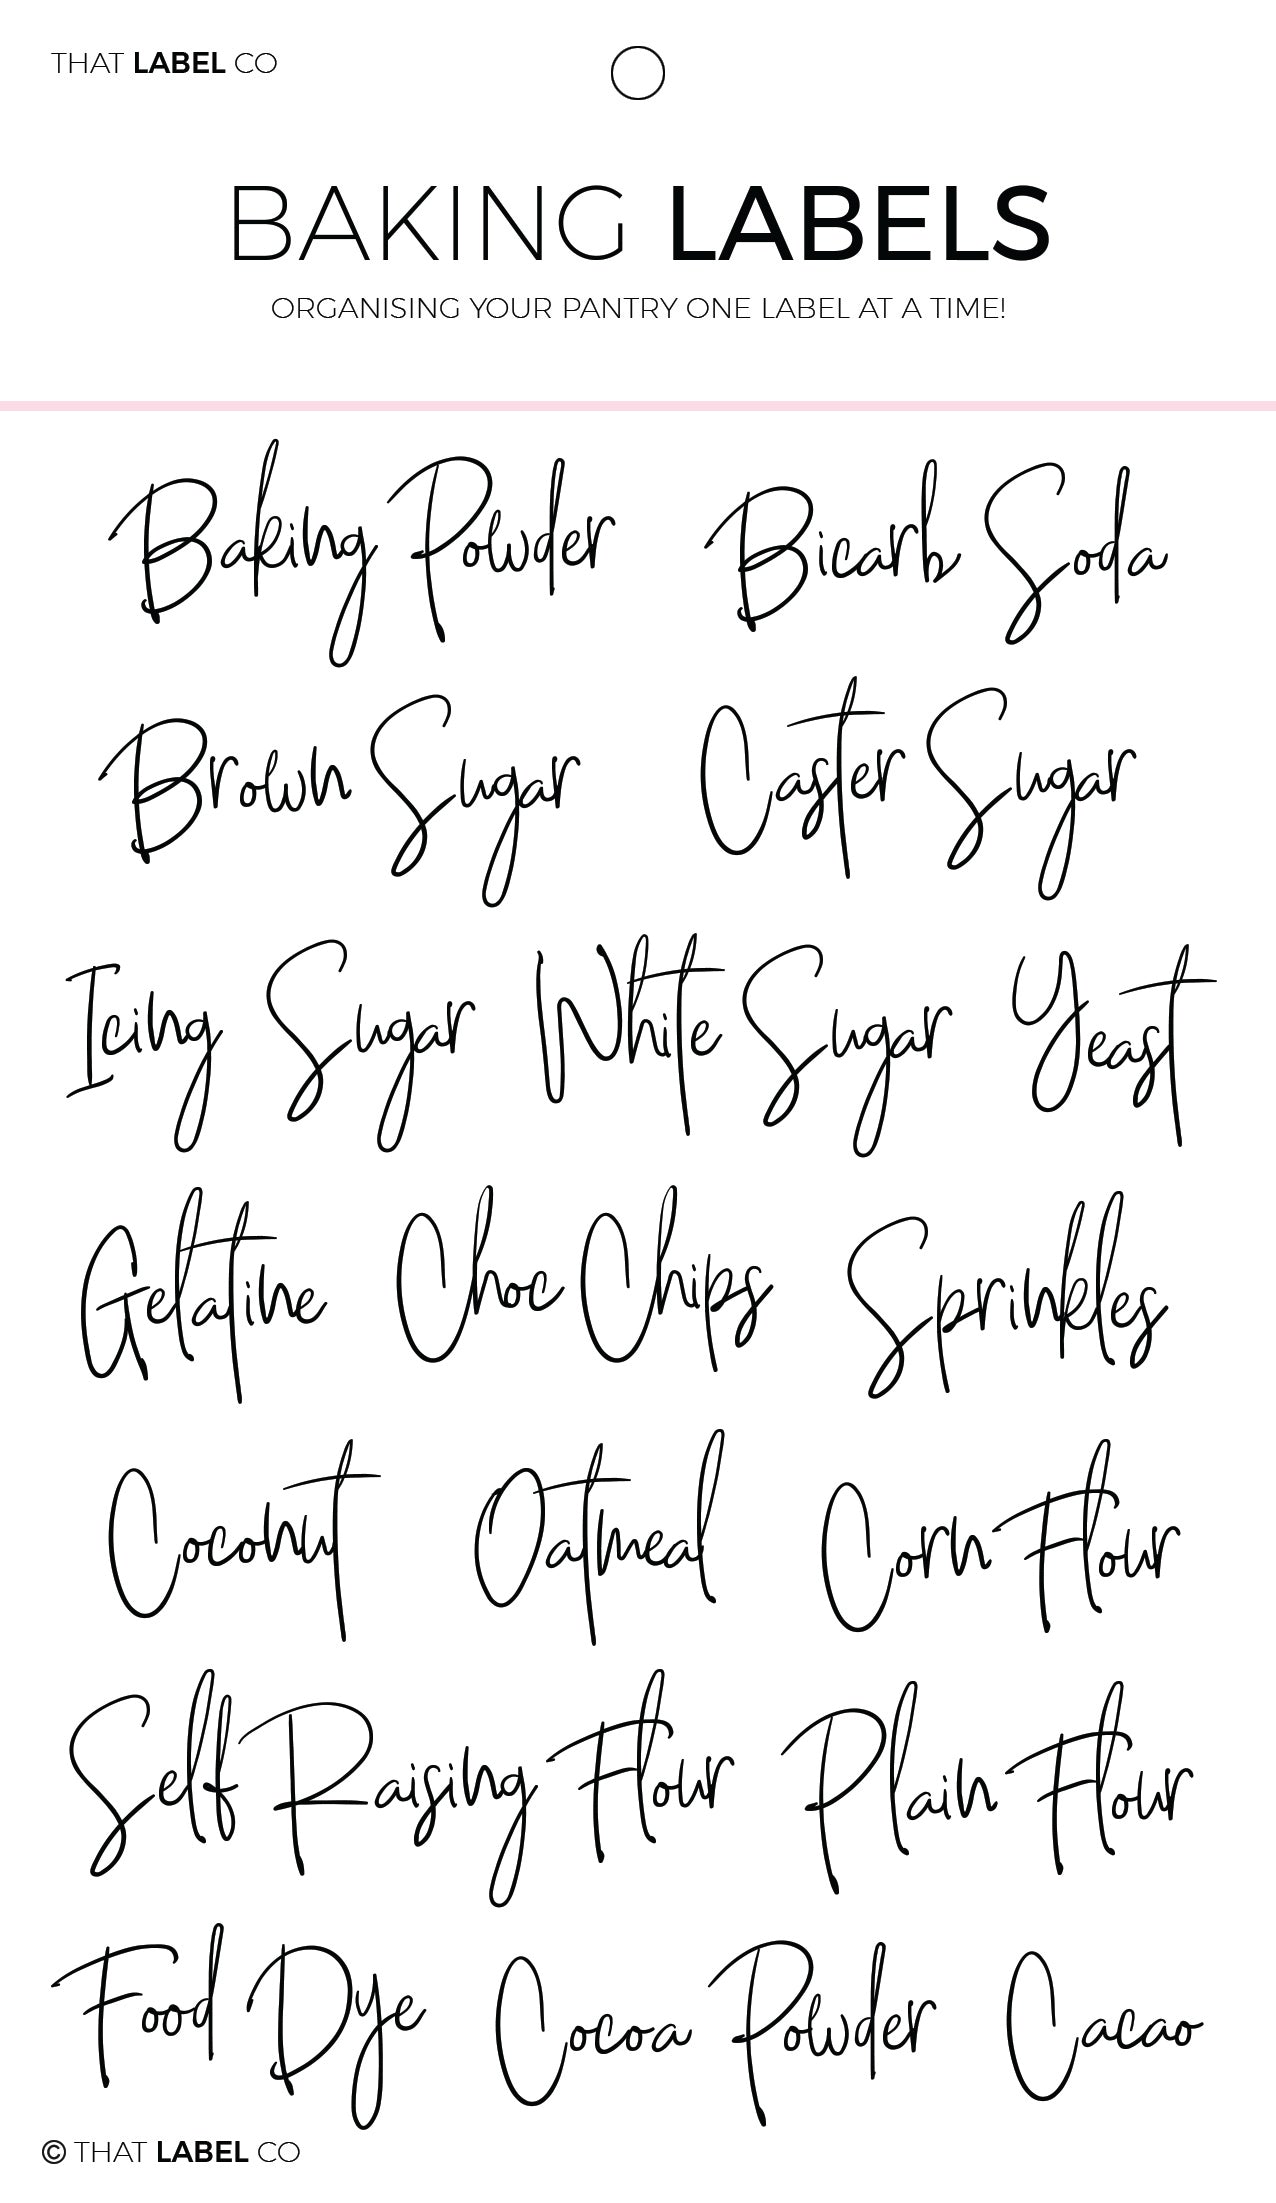 THAT LABEL CO
BAKING LABELS
ORGANISING YOUR PANTRY ONE LABEL AT A TIME!
Baking Powder Bicarb Soda
Brown Sugar Caster Sugar
Icing Sugar White Sugar Yeast
Gelatine Choc Chips Sprinkles
Coconut Oatmeal Corn Flour
Self Raising Flour Plain Flour
Food Dye Cocoa Powder Cacao
© THAT LABEL CO